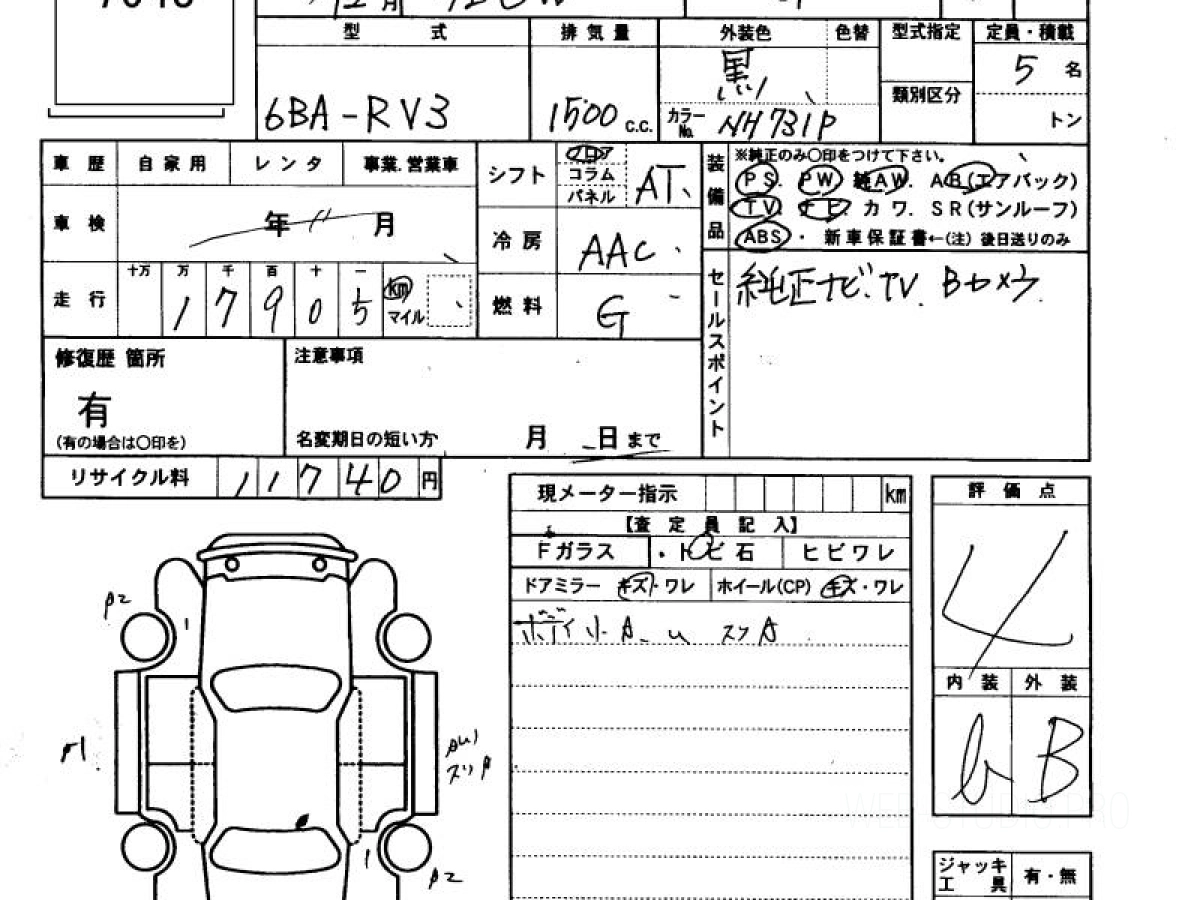 型式 排気量 外装色 色替 型式指定 定員・積載
黒 5 名
6BA-RV3 1500 c.c. カラーNo. NH731P 類別区分 トン
車歴 自家用 レンタ 事業.営業車
シフト フロア コラム パネル AT
車検 年 11 月
冷房 AAC
走行 十万 万 千 百 十 一
1 7 9 0 5 km マイル
燃料 G
装備品 ※純正のみ〇印をつけて下さい。
PS. PW. 純AW. AB(エアバック)
TV. ナビ. カワ. SR(サンルーフ)
ABS・新車保証書←(注)後日送りのみ
セールスポイント 純正ナビ.TV. Bカメラ.
修復歴 箇所
有
(有の場合は〇印を)
注意事項
名変期日の短い方 月 日 まで
リサイクル料 11740 円
現メーター指示 km
【査定員記入】
Fガラス ・トビ石 ヒビワレ
ドアミラー キズ・ワレ ホイール(CP) キズ・ワレ
評価点
4
内装 外装
b B
ジャッキ 有・無
工具
A2
1
A1
スリA
1
A2